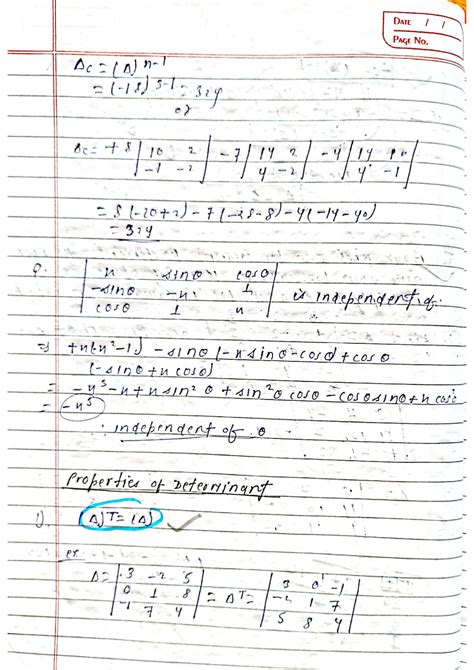 DATE / /
PAGE No.
Δc = (Δ)^n-1
= (-18)^3-1 = 324
or
Δc = + 8 | 10 2 | - 7 | 14 2 | - 4 | 14 10 |
| -1 -2 | | 4 -2 | | 4 -1 |
= 8 (-20+2) - 7 (-28-8) - 4 (-14-40)
= 324
Q. | x sinθ cosθ |
| -sinθ -x 1 | is independent of
| cosθ 1 x |
⇒ +x(-x²-1) - sinθ (-x sinθ - cosθ) + cosθ
(-sinθ + x cosθ)
= -x³ - x + x sin² θ + sin²θ cosθ - cosθ sinθ + x cosθ
= -x³
∴ independent of θ
Properties of Determinant
1). Δ)T = (Δ)
ex
Δ = | 3 -2 5 | = ΔT = | 3 0 -1 |
| 0 1 8 | | -2 1 7 |
| -1 7 4 | | 5 8 4 |